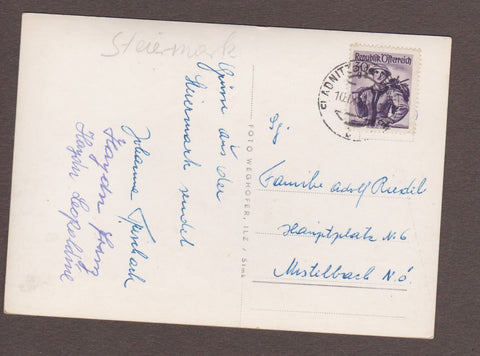 Steiermark
Grüsse aus der
Steiermark sendet
Johanna
Haydn Franz
Haydn Leopoldine
FOTO WEGHOFER, ILZ / Stmk
Republik Österreich
Familie Adolf Riedel
Hauptplatz N. 6
Mistelbach N.Ö.